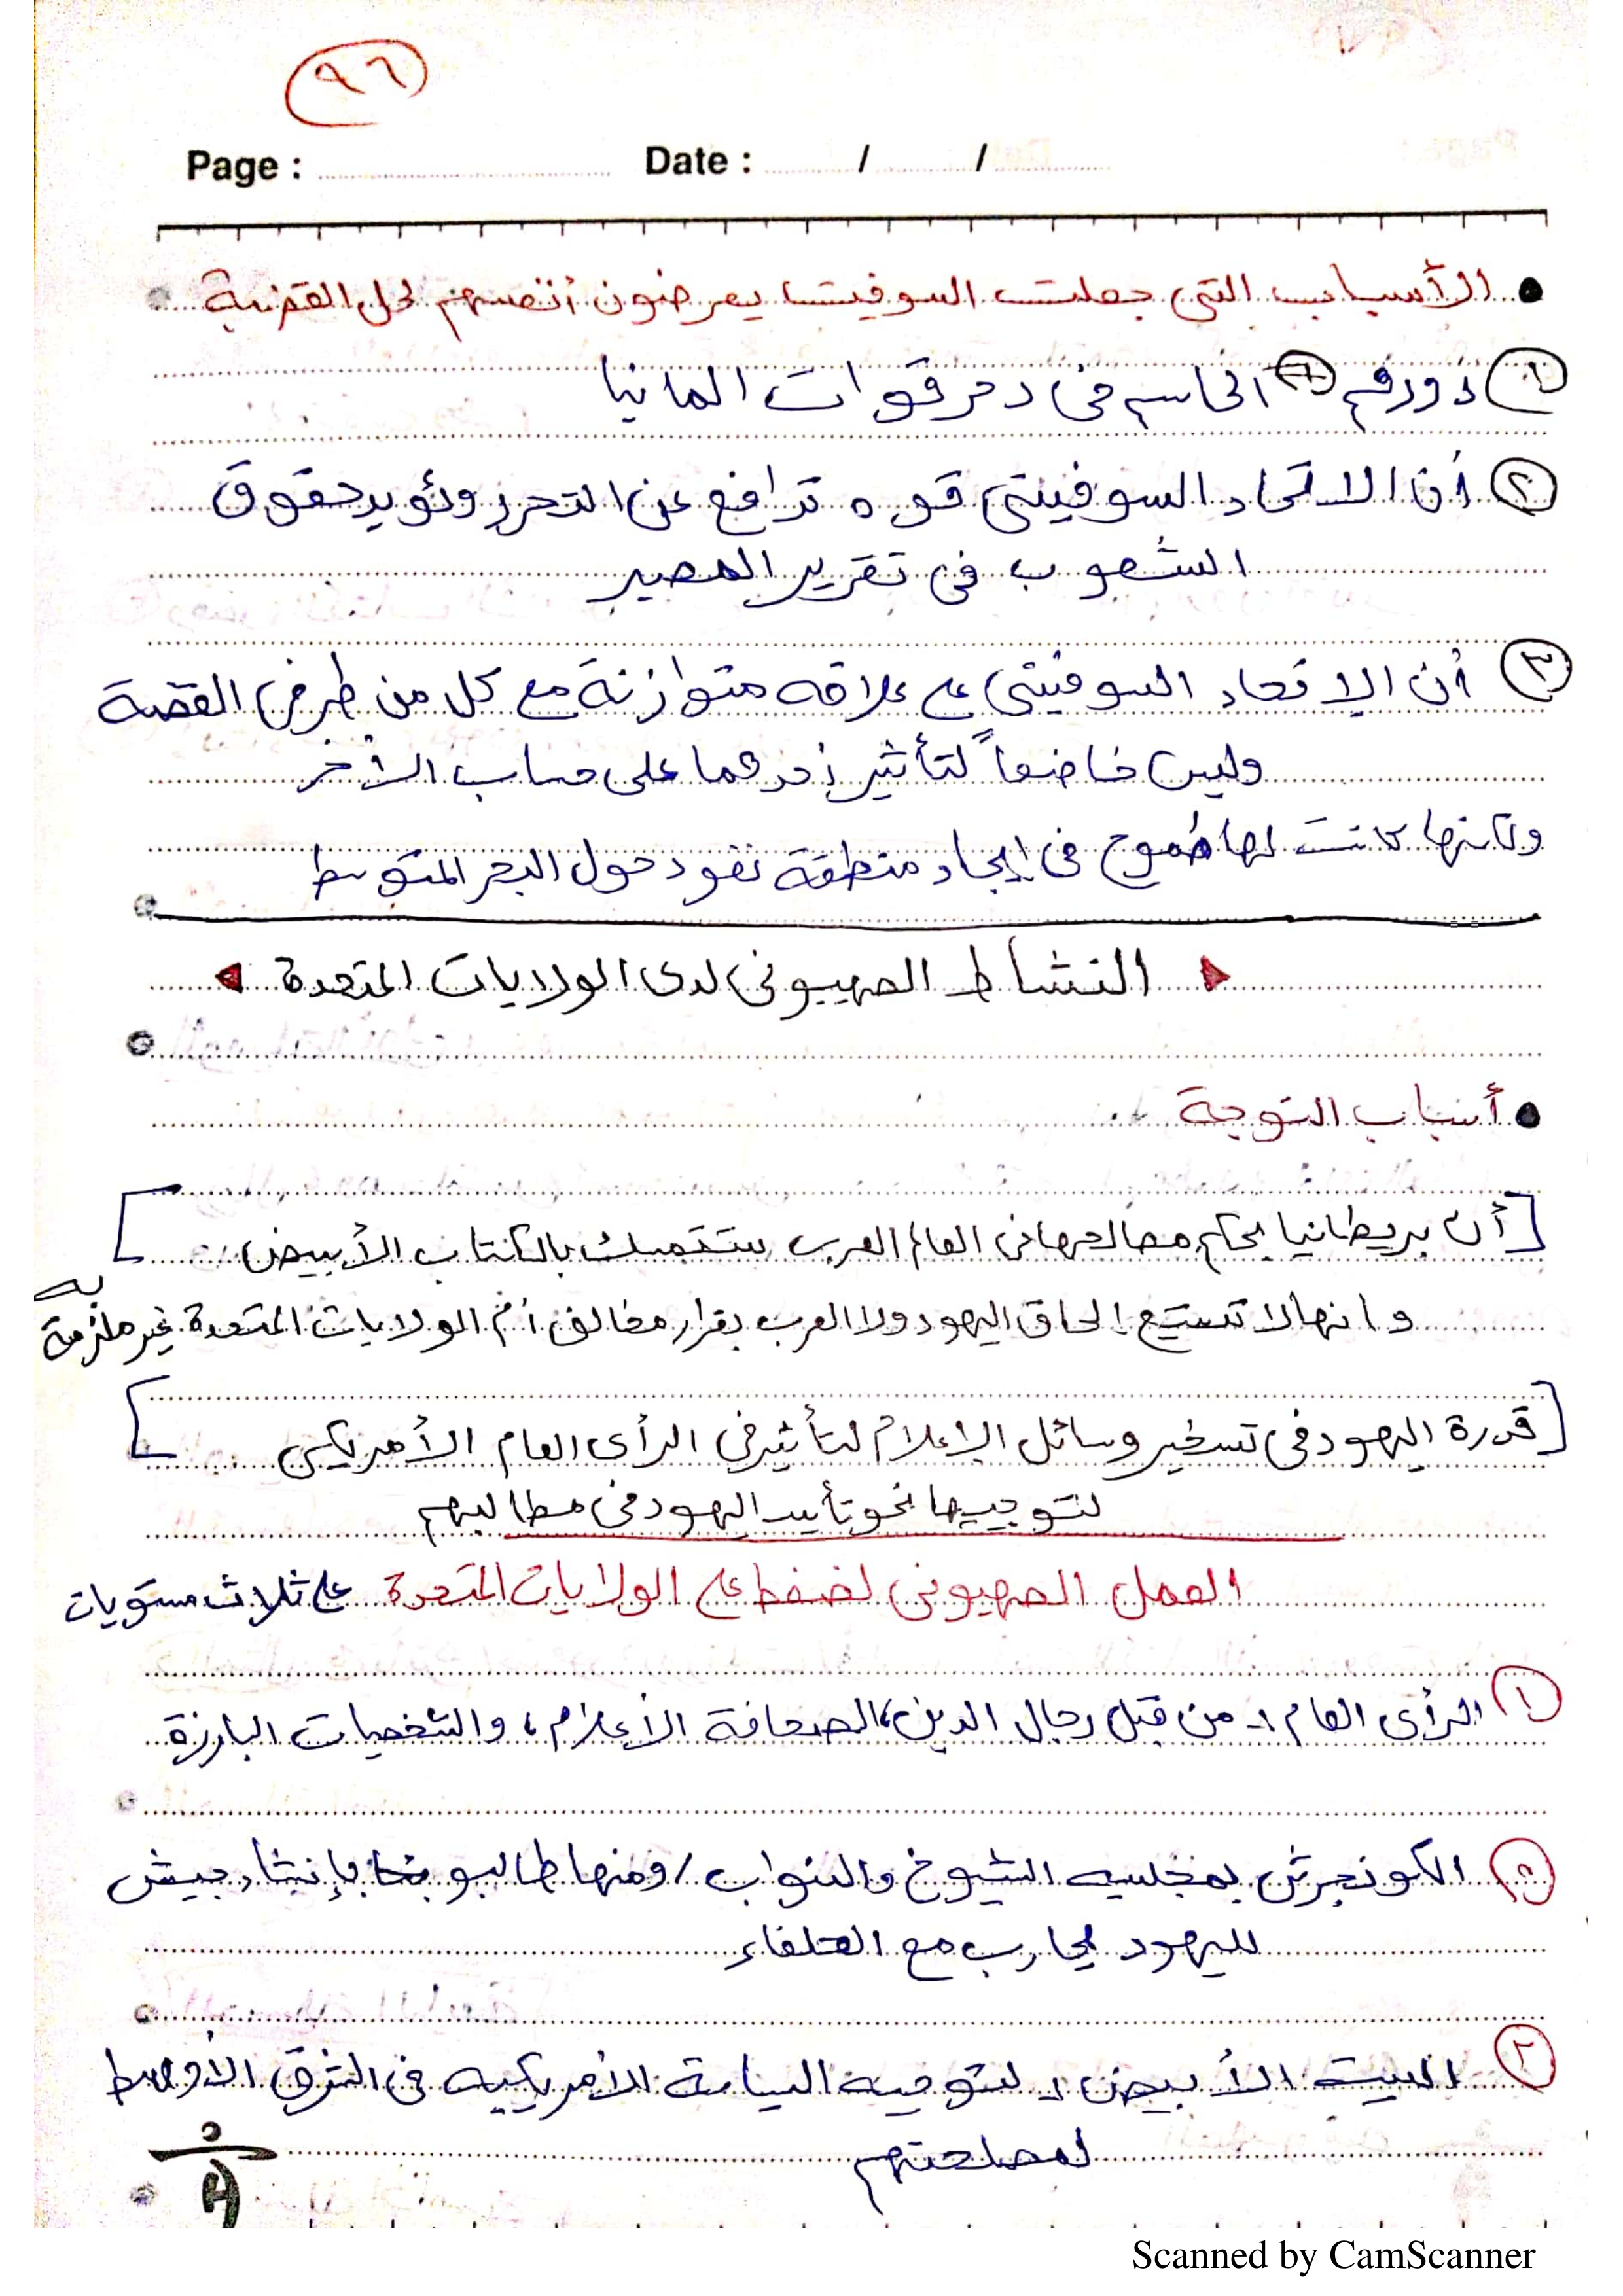 ٩٦
Page : Date : / /
• الأسباب التى جعلت السوفيت يعرضون أنفسهم لحل القضية
١ دورهم الحاسم فى دحر قوات المانيا
٢ أن الاتحاد السوفيتى قوه تدافع عن التحرر وتؤيد حقوق
الشعوب فى تقرير المصير
٣ أن الإتحاد السوفيتى على علاقه متوازنة مع كل من طرفى القضية
وليس خاضعاً لتأثير إحدهما على حساب الأخر
ولكنها كانت لها طموح فى إيجاد منطقة نفوذ حول البحر المتوسط
النشاط الصهيونى لدى الولايات المتحدة
• أسباب التوجة
[أن بريطانيا بحكم مصالحها فى العالم العربى ستتمسك بالكتاب الأبيض]
وانها لا تستيع إلحاق اليهود ولا العرب بقرار مخالف أم الولايات المتحدة غير ملزمة به
[قدرة اليهود فى تسخير وسائل الإعلام لتأثير فى الرأى العام الأمريكى]
لتوجيهها نحو تأييد اليهود فى مطالبهم
العمل الصهيونى لضغط على الولايات المتحدة على ثلاث مستويات
١ الرأى العام :- من قبل رجال الدين، الصحافة الأعلام، والشخصيات البارزة
٢ الكونجرش بمجلسيه الشيوخ والنواب / ومنها طالبو بإنشاء جيش
لليهود يحارب مع الحلفاء
٣ البيت الأبيض :- لتوجيه السياسة الأمريكيه فى الشرق الأوسط
لمصلحتهم
Scanned by CamScanner